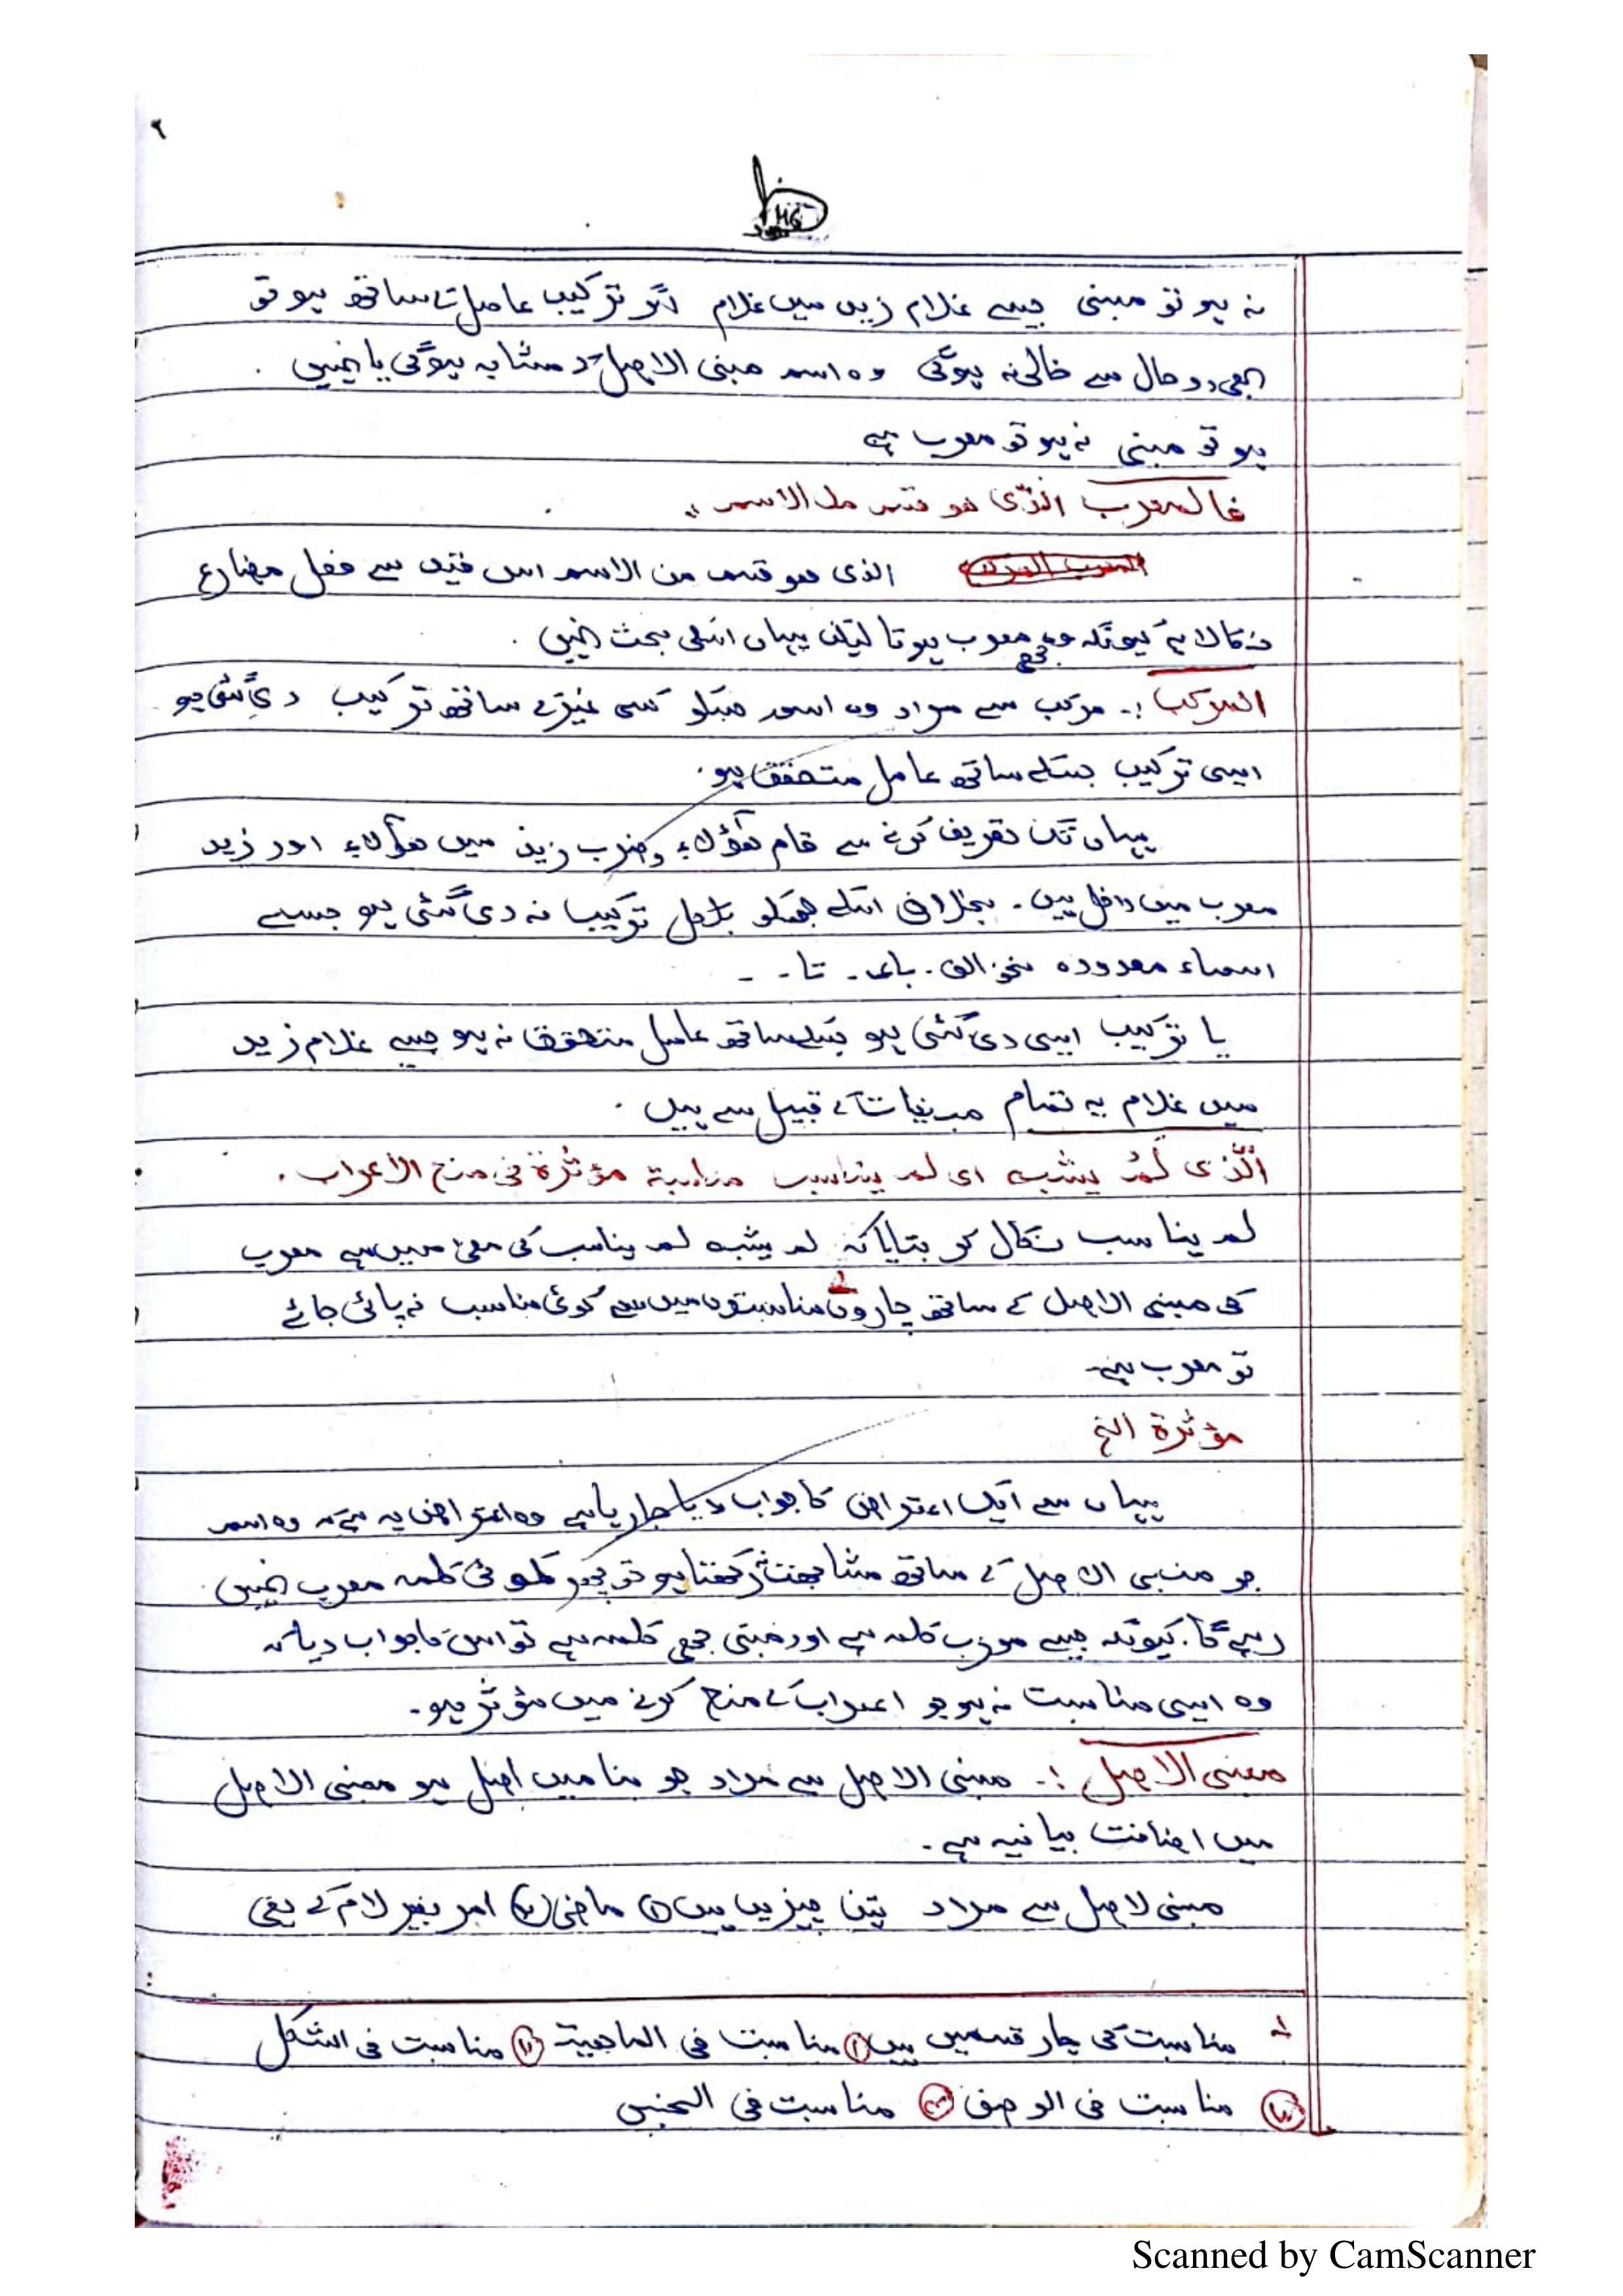 ۲
نہ ہو تو مبنی جیسے غلام زید میں غلام اگر ترکیب عامل کے ساتھ ہو تو
بھی دو حال سے خالی نہ ہوگی وہ اسم مبنی الاصل کے مشابہ ہوگی یا نہیں .
ہو تو مبنی نہ ہو تو معرب ہے
فالمعرب الذی ھو قسم من الاسم ،،
الذی ھو قسم من الاسم اس قید سے فعل مضارع
نکالا ہے کیونکہ وہ بھی معرب ہوتا لیکن یہاں اسکی بحث نہیں .
المرکب :۔ مرکب سے مراد وہ اسم جسکو کسی غیر کے ساتھ ترکیب دی گئی ہو
ایسی ترکیب جسکے ساتھ عامل متحقق ہو .
یہاں تک تعریف کرنے سے قام ھؤلاء و ضرب زید میں ھؤلاء اور زید
معرب میں داخل ہیں ۔ بخلاف اسکے جسکو بالکل ترکیب نہ دی گئی ہو جیسے
اسماء معدودہ نحو الف . با . تا . . .
یا ترکیب ایسی دی گئی ہو جسکے ساتھ عامل متحقق نہ ہو جیسے غلام زید
میں غلام یہ تمام مبنیات کے قبیل سے ہیں .
الَّذی لَمْ یشبہ ای لم یناسب مناسبة مؤثرة فی منع الاعراب .
لم یناسب نکال کر بتایا کہ لم یشبہ لم یناسب کی معنی میں ہے معرب
کی مبنی الاصل کے ساتھ چاروں مناسبتوں میں سے کوئی مناسب نہ پائی جائے
تو معرب ہے۔
مؤثرة الخ
یہاں سے ایک اعتراض کا جواب دیا جارہا ہے وہ اعتراض یہ ہے کہ وہ اسم
جو مبنی الاصل کے ساتھ مشابھت رکھتا ہو تو پھر کوئی کلمہ معرب نہیں
رہے گا . کیونکہ جیسے معرب کلمہ ہے اور مبنی بھی کلمہ ہے تو اس کا جواب دیا کہ
وہ ایسی مناسبت نہ ہو جو اعراب کے منع کرنے میں مؤثر ہو ۔
مبنی الاصل :۔ مبنی الاصل سے مراد جو بنا میں اصل ہو مبنی الاصل
میں اضافت بیانیہ ہے ۔
مبنی لاصل سے مراد تین چیزیں ہیں ① ماضی ② امر بغیر لام کے یعنی
۱ مناسبت کی چار قسمیں ہیں ① مناسبت فی الماھیة ② مناسبت فی الشکل
③ مناسبت فی الوصف ④ مناسبت فی الجنس
Scanned by CamScanner